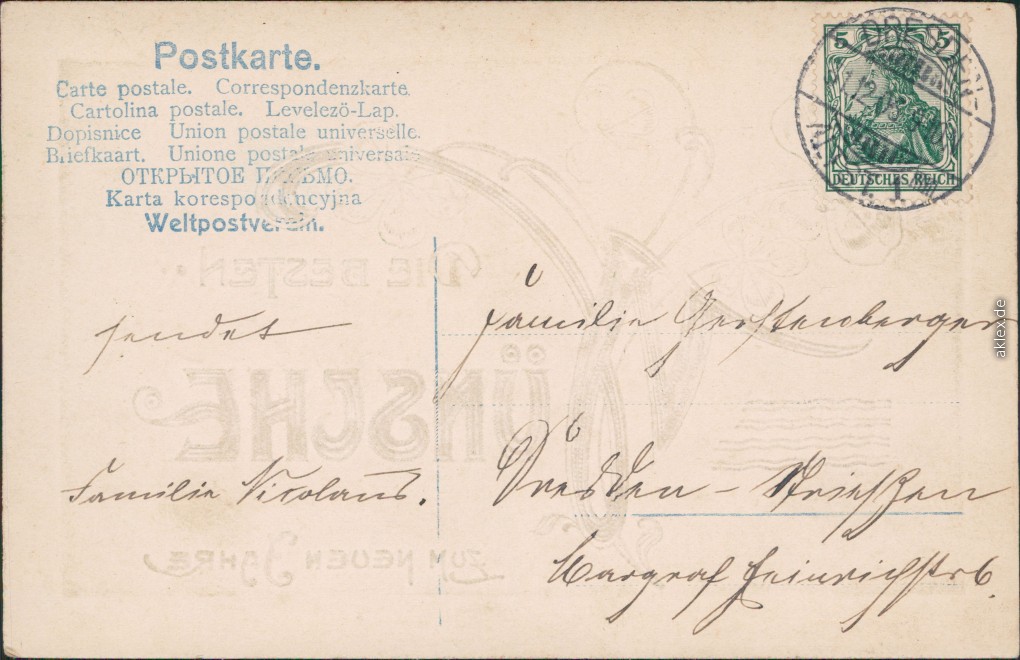 Postkarte.
Carte postale. Correspondenzkarte.
Cartolina postale. Levelező-Lap.
Dopisnice Union postale universelle.
Briefkaart. Unione postale universale
ОТКРЫТОЕ ПИСЬМО.
Karta korespondencyjna
Weltpostverein.
5 5
DEUTSCHES REICH
DRESDEN-
DIE BESTEN
WÜNSCHE
ZUM NEUEN JAHRE
sendet
Familie Nicolaus.
Familie Gerstenberger
Dresden - Striessen
Margraf Heinrichstr 6
aklex.de